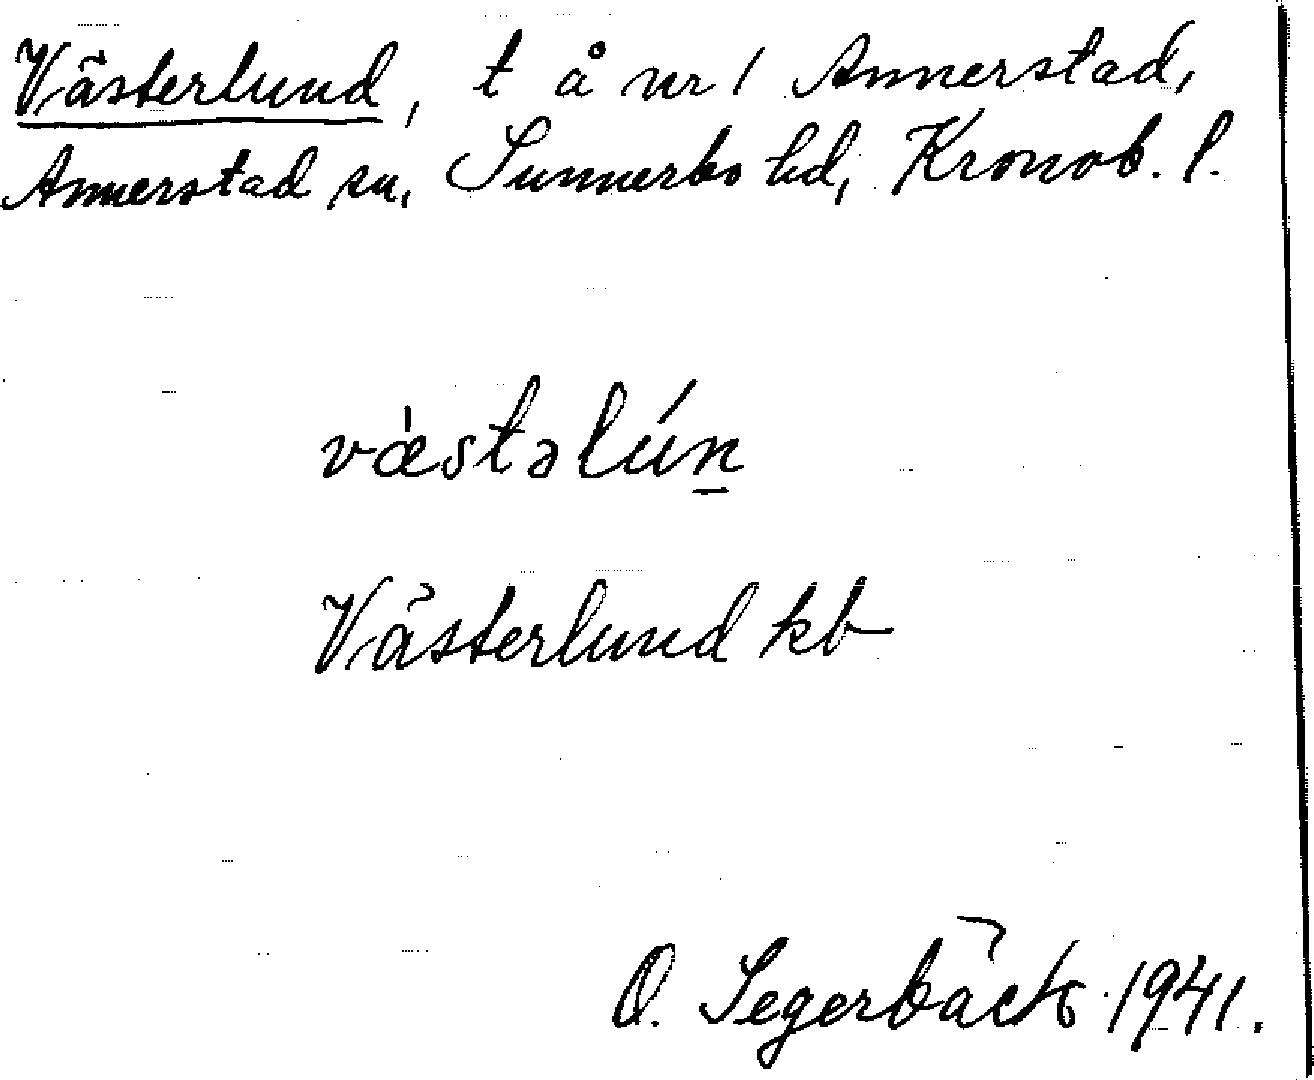 Västerlund, t å nr 1 Annerstad,
Annerstad sn, Sunnerbo hd, Kronob. l.
væ̀stəlún̲
Västerlund kb
O. Segerbäck 1941.